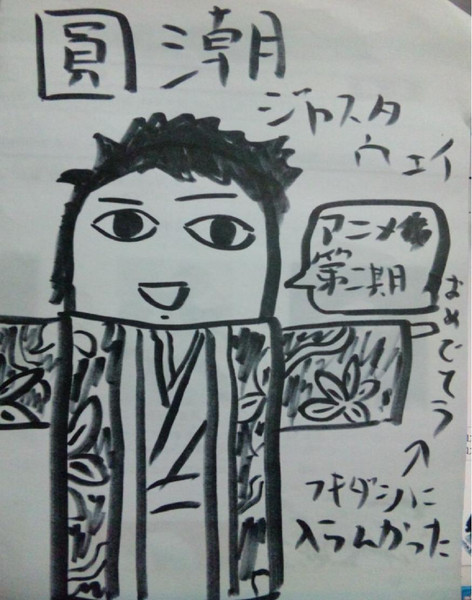 圓潮
ジャスタ
ウェイ
アニメ
第二期
おめでてう
↑
フキダシに
入らんかった